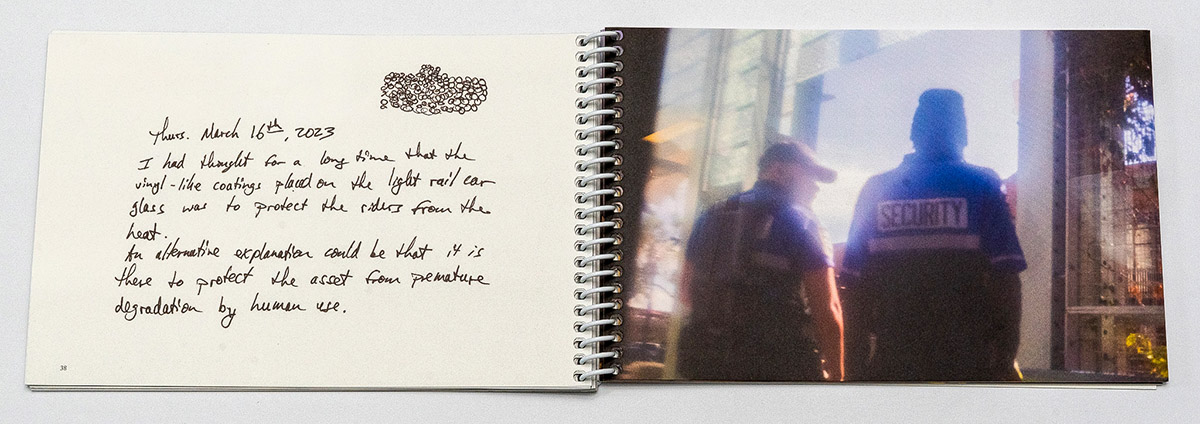 Thurs. March 16th, 2023
I had thought for a long time that the
vinyl-like coatings placed on the light rail car
glass was to protect the riders from the
heat.
An alternative explanation could be that it is
there to protect the asset from premature
degradation by human use.
38
SECURITY